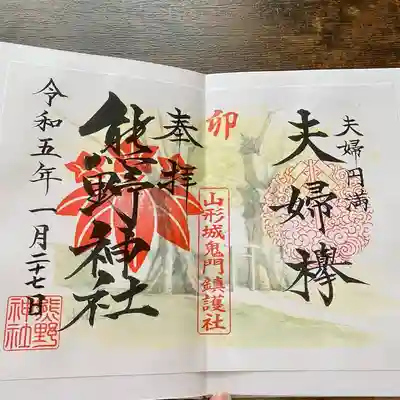 夫婦円満
夫婦欅
卯
山形城鬼門鎮護社
奉拝
熊野神社
令和五年一月二十七日
熊野
神社